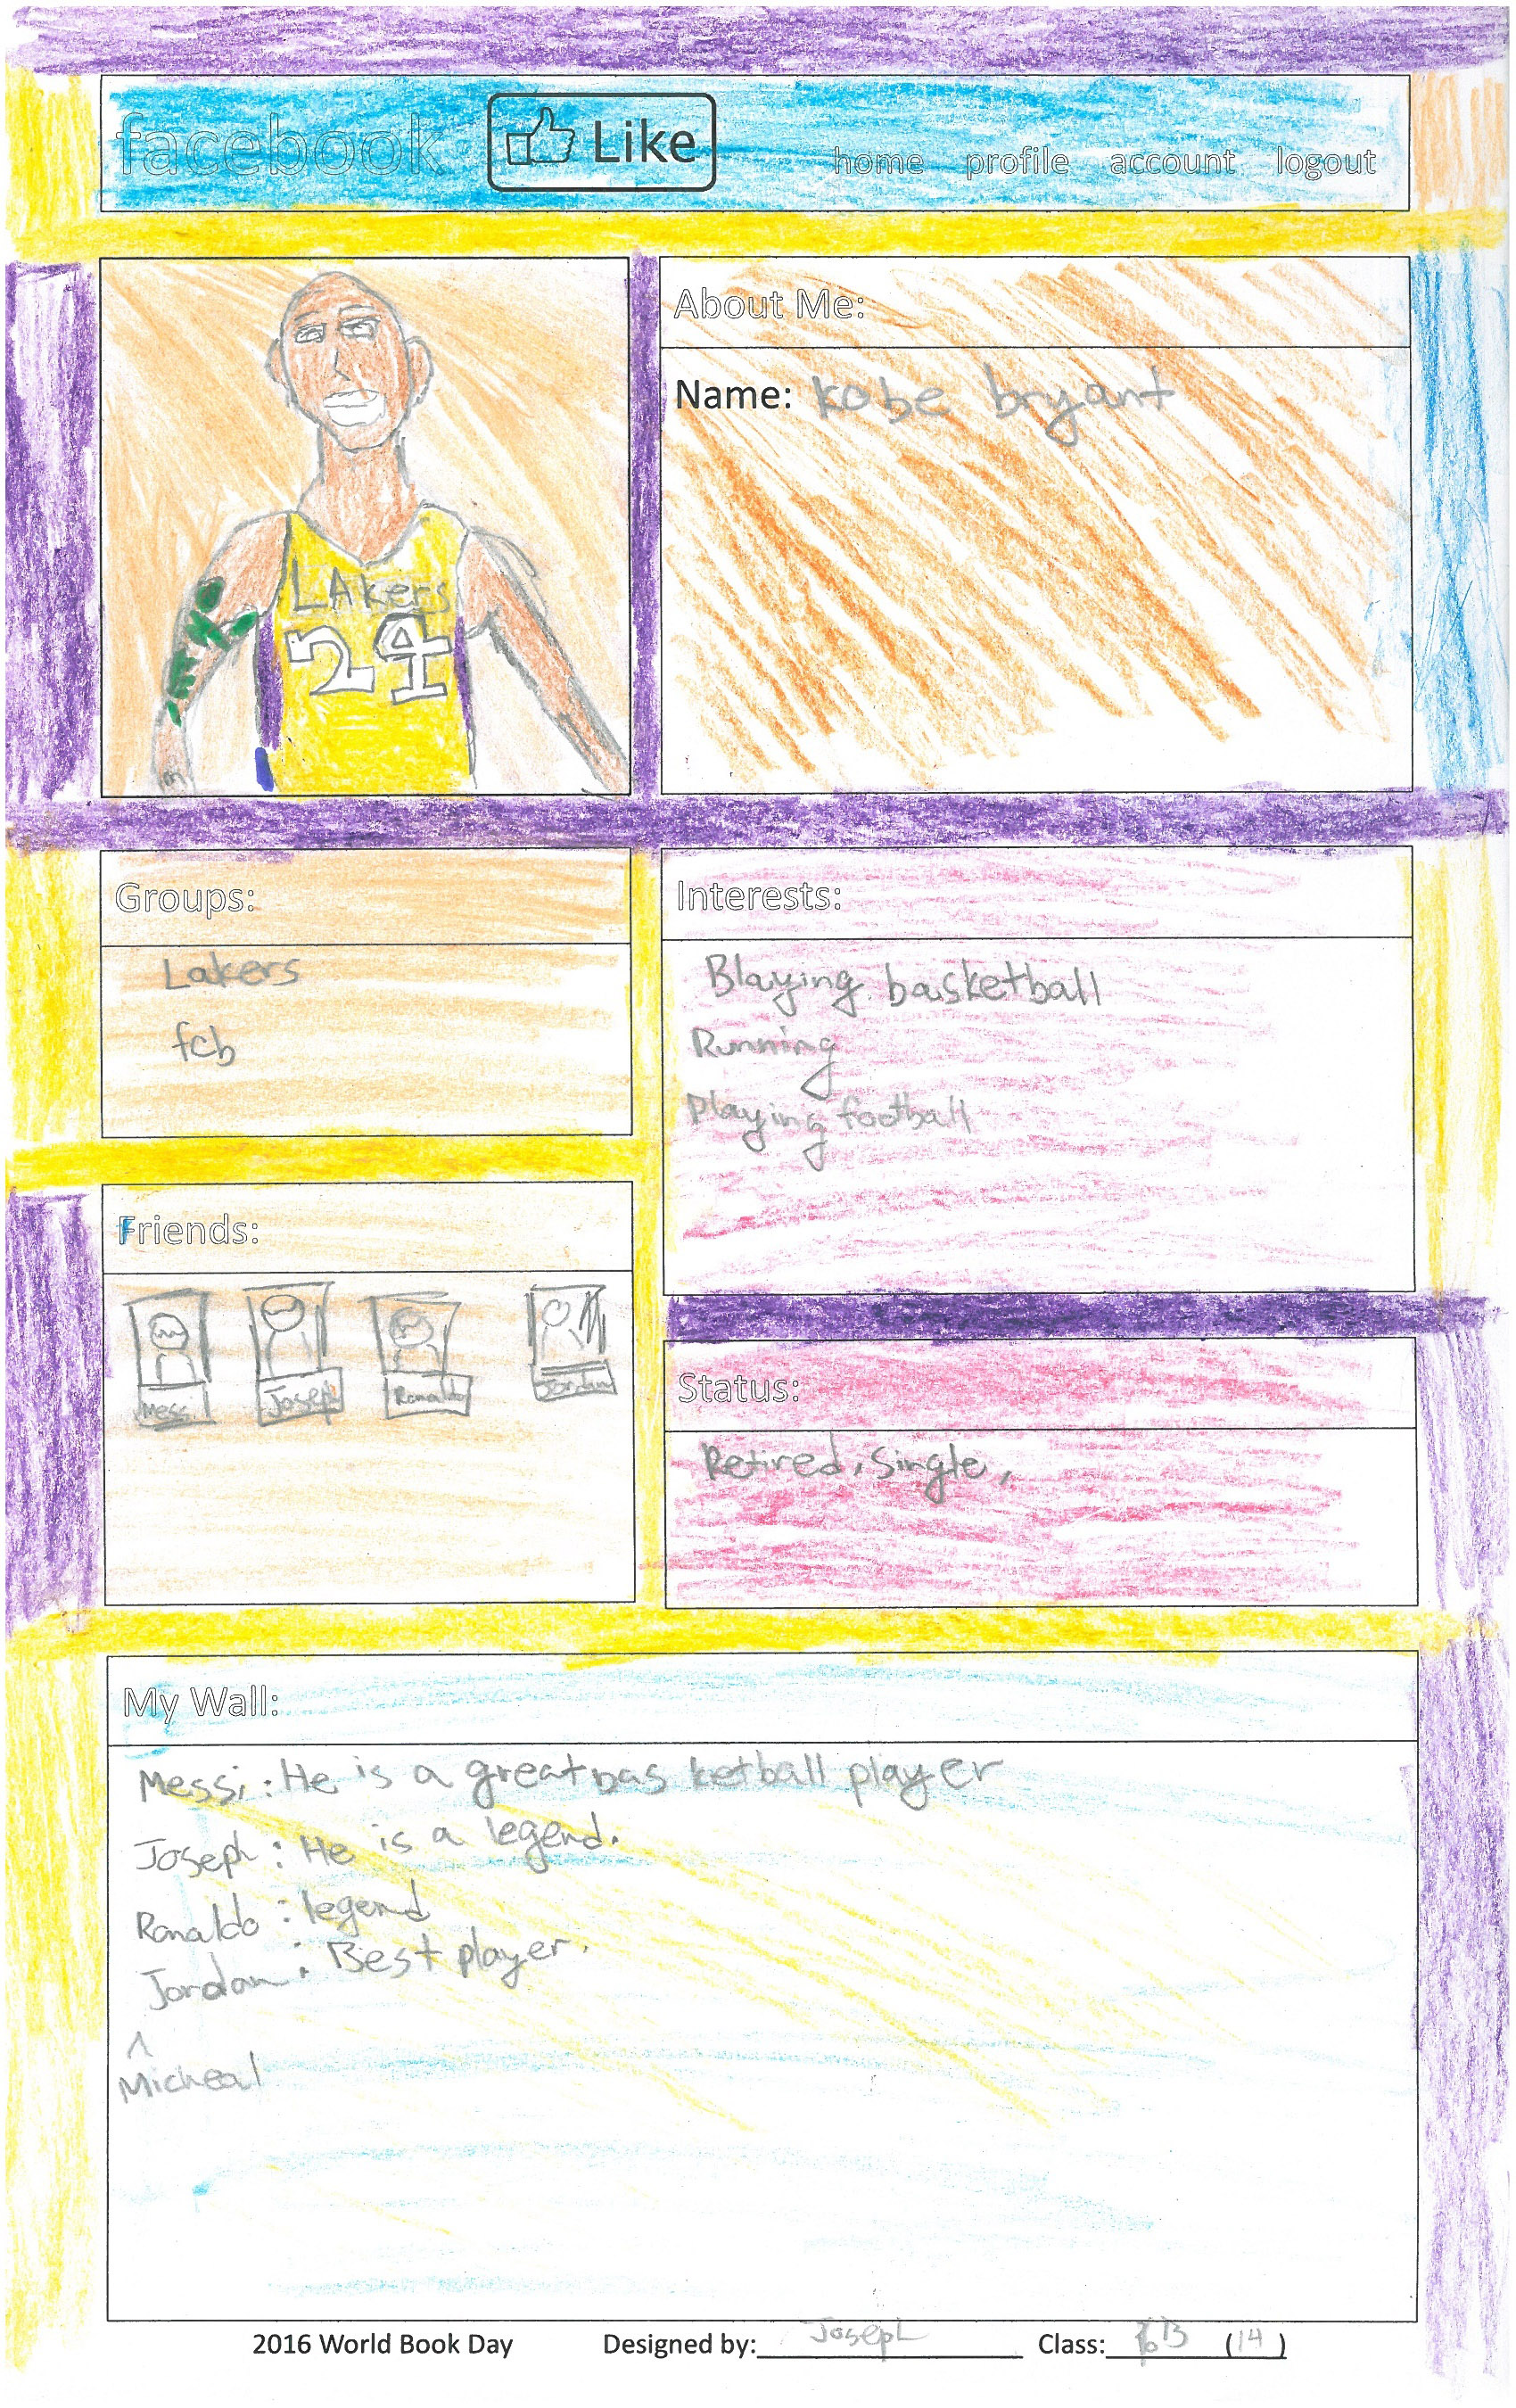 facebook Like home profile account logout
About Me:
Name: kobe bryant
LAkers
24
Groups:
Lakers
fcb
Interests:
Blaying basketball
Running
Playing football
Friends:
Messi Joseph Ronaldo Jordan
Status:
Retired, Single,
My Wall:
Messi: He is a great basketball player
Joseph: He is a legend.
Ronaldo: legend
Jordan: Best player.
^
Micheal
2016 World Book Day Designed by: Joseph Class: (14)